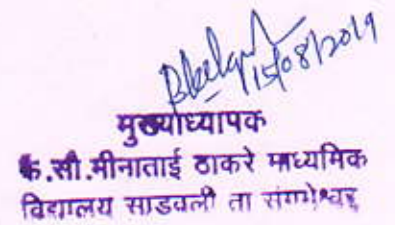 15/08/2019
मुख्याध्यापक
कै.सौ.मीनाताई ठाकरे माध्यमिक
विद्यालय साडवली ता संगमेश्वर